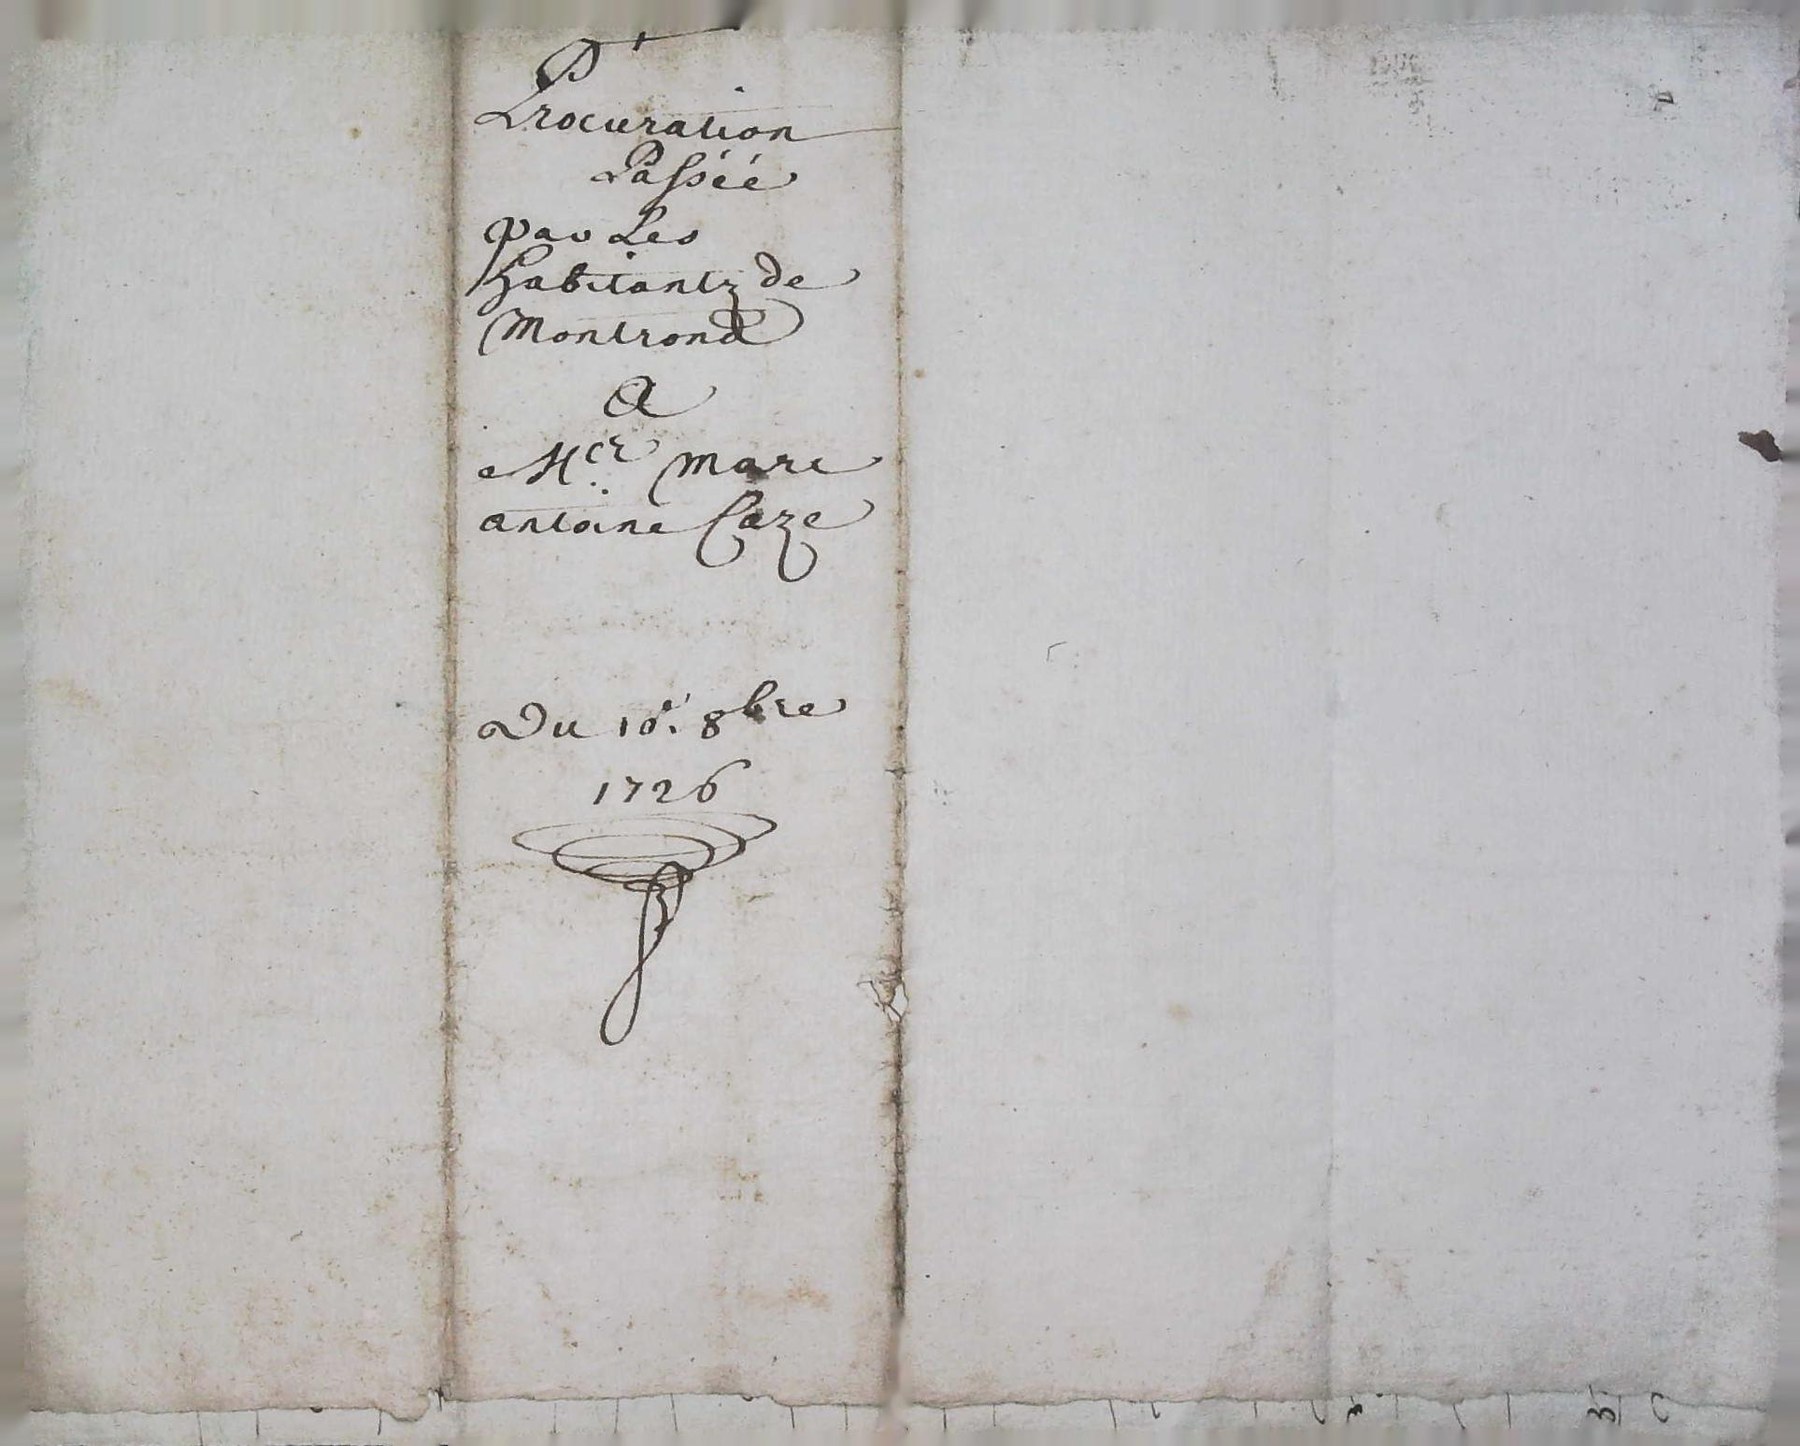 Procuration
Passéé
par Les
habitantz de
Montrond
A
Mer marc
antoine Caze
Du 10e. 8bre
1726